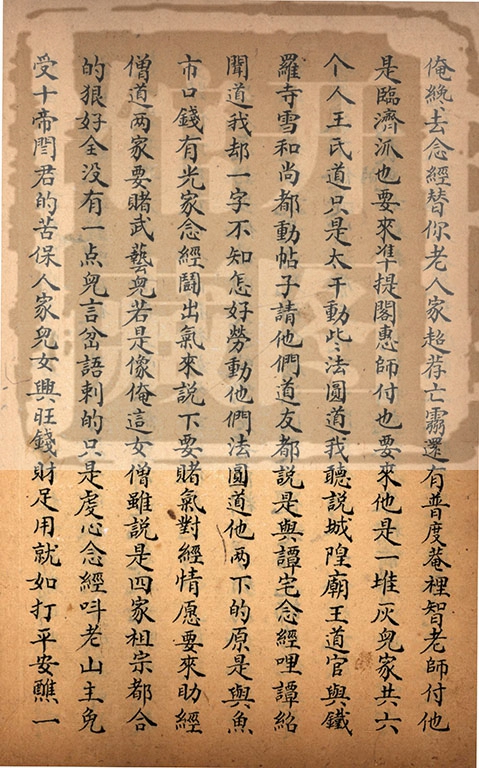 俺纔去念經替你老人家超荐亡靈還有普度菴裡智老師付他
是臨濟派也要來准提閣惠師付也要來他是一堆灰兒家共六
个人王氏道只是太干動些法圓道我聽說城隍廟王道官與鐵
羅寺雪和尚都動帖子請他們道友都說是與譚宅念經哩譚紹
聞道我却一字不知怎好勞動他們法圓道他两下的原是與魚
市口錢有光家念經鬪出氣來說下要賭氣對經情愿要來助經
僧道两家要賭武藝兒若是像俺這女僧雖說是四家祖宗都合
的狠好全没有一点兒言岔語刺的只是虔心念經呌老山主免
受十帝閆君的苦保人家兒女興旺錢財足用就如打平安醮一